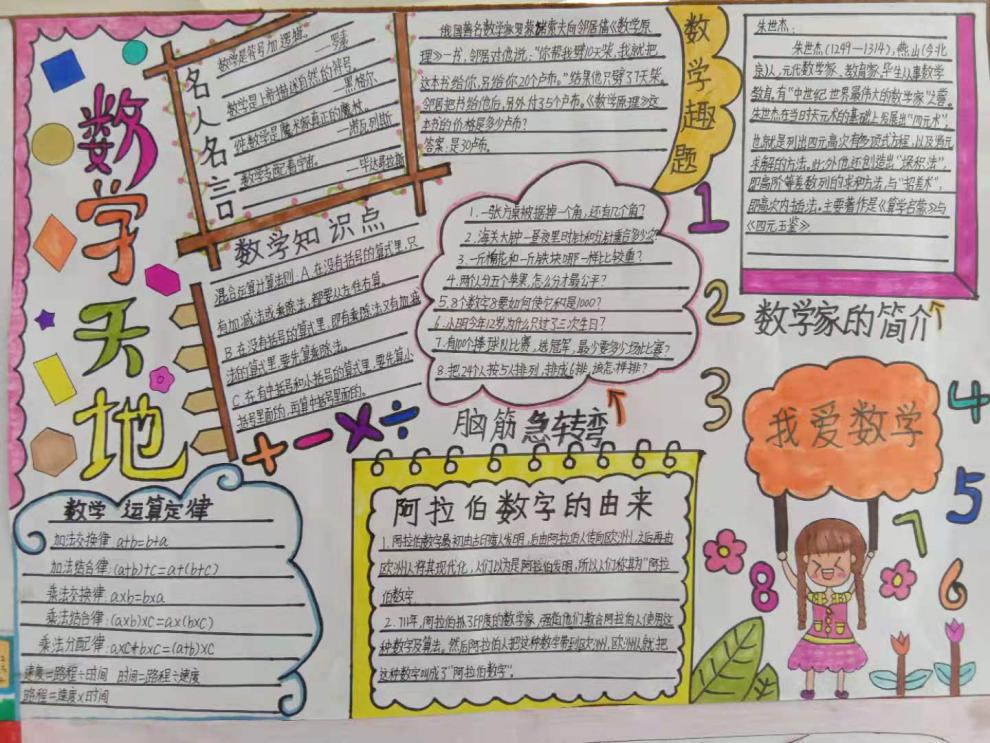 数学天地
名人名言
数学是符号加逻辑。
——罗素
数学是上帝描述自然的符号。
——黑格尔
纯数学是魔术家真正的魔杖。
——诺瓦列斯
数学支配着宇宙。
——毕达哥拉斯
数学趣题
俄国著名数学家罗蒙诺索夫向邻居借《数学原
理》一书，邻居对他说："你帮我劈10天柴，我就把
这本书给你，另给你20个卢布。"结果他只劈了7天柴。
邻居把书给他后，另外付了5个卢布。《数学原理》这
本书的价格是多少卢布？
答案：是30卢布。
朱世杰：
朱世杰(1249—1314)，燕山(今北
京)人，元代数学家、教育家，毕生从事数学
教育。有"中世纪世界最伟大的数学家"之誉。
朱世杰在当时天元术的基础上发展出"四元术"，
也就是列出四元高次多项式方程，以及消元
求解的方法。此外他还创造出"垛积法"，
即高阶等差数列的求和方法，与"招差术"，
即高次内插法。主要著作是《算学启蒙》与
《四元玉鉴》
数学家的简介
数学知识点
混合运算计算法则：A.在没有括号的算式里，只
有加减法或乘除法，都要从左往右算。
B.在没有括号的算式里，即有乘除法又有加减
法的算式里，要先算乘除法。
C.在有中括号和小括号的算式里，要先算小
括号里面的，再算中括号里面的。
+ - × ÷
1.一张方桌被据掉一个角，还有几个角？
2.海关大钟一昼夜里时针和分针重合多少次
3.一斤棉花和一斤铁块哪一样比较重？
4.两个人分五个苹果，怎么分才最公平？
5.8个数字8要如何使它积是1000？
6.小明今年12岁，为什么只过了三次生日？
7.有100个棒球队比赛，选冠军，最少要多少场比赛？
8.把24个人按5人排列，排成6排，该怎样排？
脑筋急转弯
1
2
3
4
5
6
7
8
我爱数学
数学运算定律
加法交换律：a+b=b+a
加法结合律：(a+b)+c=a+(b+c)
乘法交换律：a×b=b×a
乘法结合律：(a×b)×c=a×(b×c)
乘法分配律：a×c+b×c=(a+b)×c
速度=路程÷时间 时间=路程÷速度
路程=速度×时间
阿拉伯数字的由来
1.阿拉伯数字最初由古印度人发明，后由阿拉伯人传向欧洲，之后再由
欧洲人将其现代化，人们以为是阿拉伯发明，所以人们称其为"阿拉
伯数字.
2.711年，阿拉伯抓了印度的数学家，强迫他们教会阿拉伯人使用这
种数字及算法。然后阿拉伯人把这种数字带到欧洲，欧洲人就把
这种数字叫成了"阿拉伯数字"。